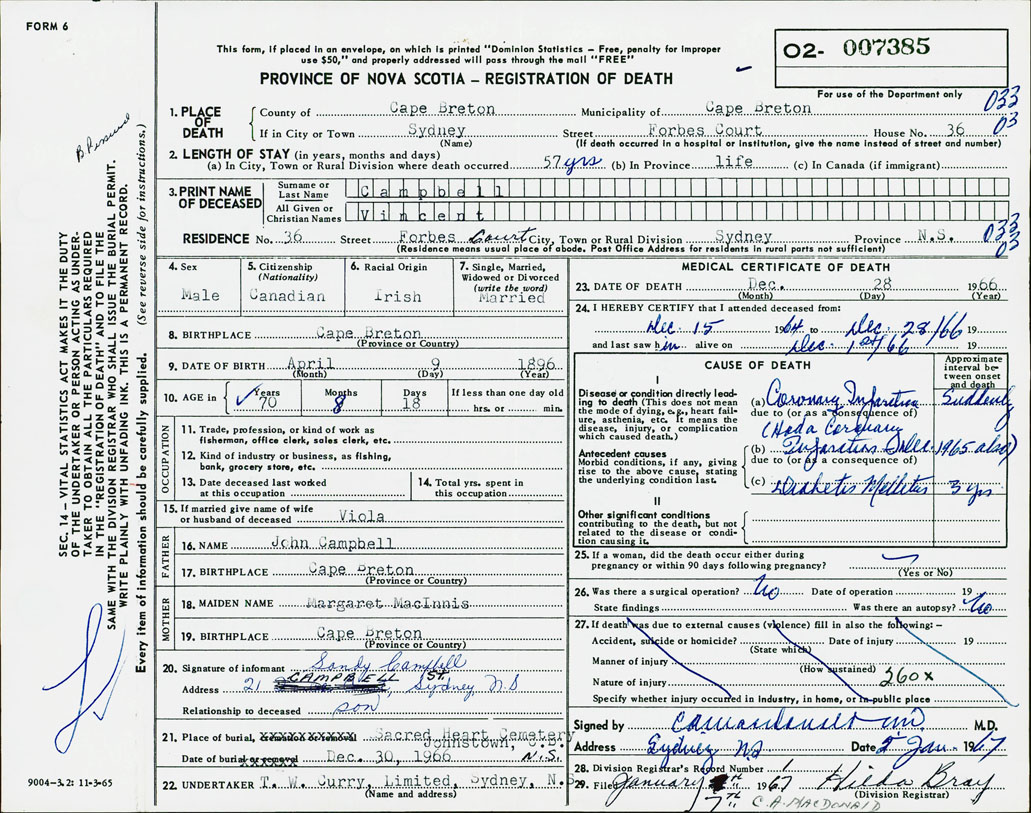 FORM 6
This form, if placed in an envelope, on which is printed "Dominion Statistics – Free, penalty for improper
use $50," and properly addressed will pass through the mail "FREE"
PROVINCE OF NOVA SCOTIA – REGISTRATION OF DEATH
02- 007385
For use of the Department only
033
03
1. PLACE OF DEATH
County of Cape Breton Municipality of Cape Breton
If in City or Town Sydney Street Forbes Court House No. 36
(Name) (If death occurred in a hospital or institution, give the name instead of street and number)
2. LENGTH OF STAY (in years, months and days)
(a) In City, Town or Rural Division where death occurred 57 yrs (b) In Province life (c) In Canada (if immigrant)
3. PRINT NAME OF DECEASED
Surname or Last Name Campbell
All Given or Christian Names Vincent
RESIDENCE No. 36 Street Forbes Court City, Town or Rural Division Sydney Province N.S.
(Residence means usual place of abode. Post Office Address for residents in rural parts not sufficient)
033
03
4. Sex
Male
5. Citizenship
(Nationality)
Canadian
6. Racial Origin
Irish
7. Single, Married,
Widowed or Divorced
(write the word)
Married
8. BIRTHPLACE Cape Breton
(Province or Country)
9. DATE OF BIRTH April 9 1896
(Month) (Day) (Year)
10. AGE in Years 70 Months 8 Days 18 If less than one day old
hrs. or min.
OCCUPATION
11. Trade, profession, or kind of work as
fisherman, office clerk, sales clerk, etc.
12. Kind of industry or business, as fishing,
bank, grocery store, etc.
13. Date deceased last worked
at this occupation
14. Total yrs. spent in
this occupation
15. If married give name of wife
or husband of deceased Viola
FATHER
16. NAME John Campbell
17. BIRTHPLACE Cape Breton
(Province or Country)
MOTHER
18. MAIDEN NAME Margaret MacInnis
19. BIRTHPLACE Cape Breton
(Province or Country)
20. Signature of informant Sandy Campbell
Address 21 CAMPBELL ST. Sydney N.S
Relationship to deceased son
21. Place of burial, Sacred Heart Cemetery
Johnstown, C.B.
Date of burial Dec. 30, 1966 N.S.
22. UNDERTAKER T. W. Curry, Limited, Sydney, N.S.
(Name and address)
MEDICAL CERTIFICATE OF DEATH
23. DATE OF DEATH Dec. 28 1966
(Month) (Day) (Year)
24. I HEREBY CERTIFY that I attended deceased from:
Dec. 15 1964 to Dec. 28/66 19
and last saw him alive on Dec. 1st/66 19
CAUSE OF DEATH
Approximate
interval be-
tween onset
and death
I
Disease or condition directly lead-
ing to death (This does not mean
the mode of dying, e.g., heart fail-
ure, asthenia, etc. It means the
disease, injury, or complication
which caused death.)
(a) Coronary Infarction Suddenly
due to (or as a consequence of)
(Had a Coronary
(b) Infarction Dec. 1965 also)
due to (or as a consequence of)
Antecedent causes
Morbid conditions, if any, giving
rise to the above cause, stating
the underlying condition last.
(c) Diabetis Mellitus 3 yrs
II
Other significant conditions
contributing to the death, but not
related to the disease or condi-
tion causing it.
25. If a woman, did the death occur either during
pregnancy or within 90 days following pregnancy?
(Yes or No)
26. Was there a surgical operation? No Date of operation 19
State findings Was there an autopsy? No
27. If death was due to external causes (violence) fill in also the following: –
Accident, suicide or homicide? Date of injury 19
(State which)
Manner of injury
(How sustained)
Nature of injury 260x
Specify whether injury occurred in industry, in home, or in public place
Signed by M.D.
Address Sydney NS Date 5 Jan 1967
28. Division Registrar's Record Number 1
29. Filed January 7TH 1967 Hilda Bray
(Division Registrar)
C.A. MACDONALD
SEC. 14 – VITAL STATISTICS ACT MAKES IT THE DUTY
OF THE UNDERTAKER OR PERSON ACTING AS UNDER-
TAKER TO OBTAIN ALL THE PARTICULARS REQUIRED
IN THE "REGISTRATION OF DEATH" AND TO FILE THE
SAME WITH THE DIVISION REGISTRAR WHO SHALL ISSUE THE BURIAL PERMIT.
WRITE PLAINLY WITH UNFADING INK. THIS IS A PERMANENT RECORD.
Every item of information should be carefully supplied. (See reverse side for instructions.)
9004-3.2: 11-3-65